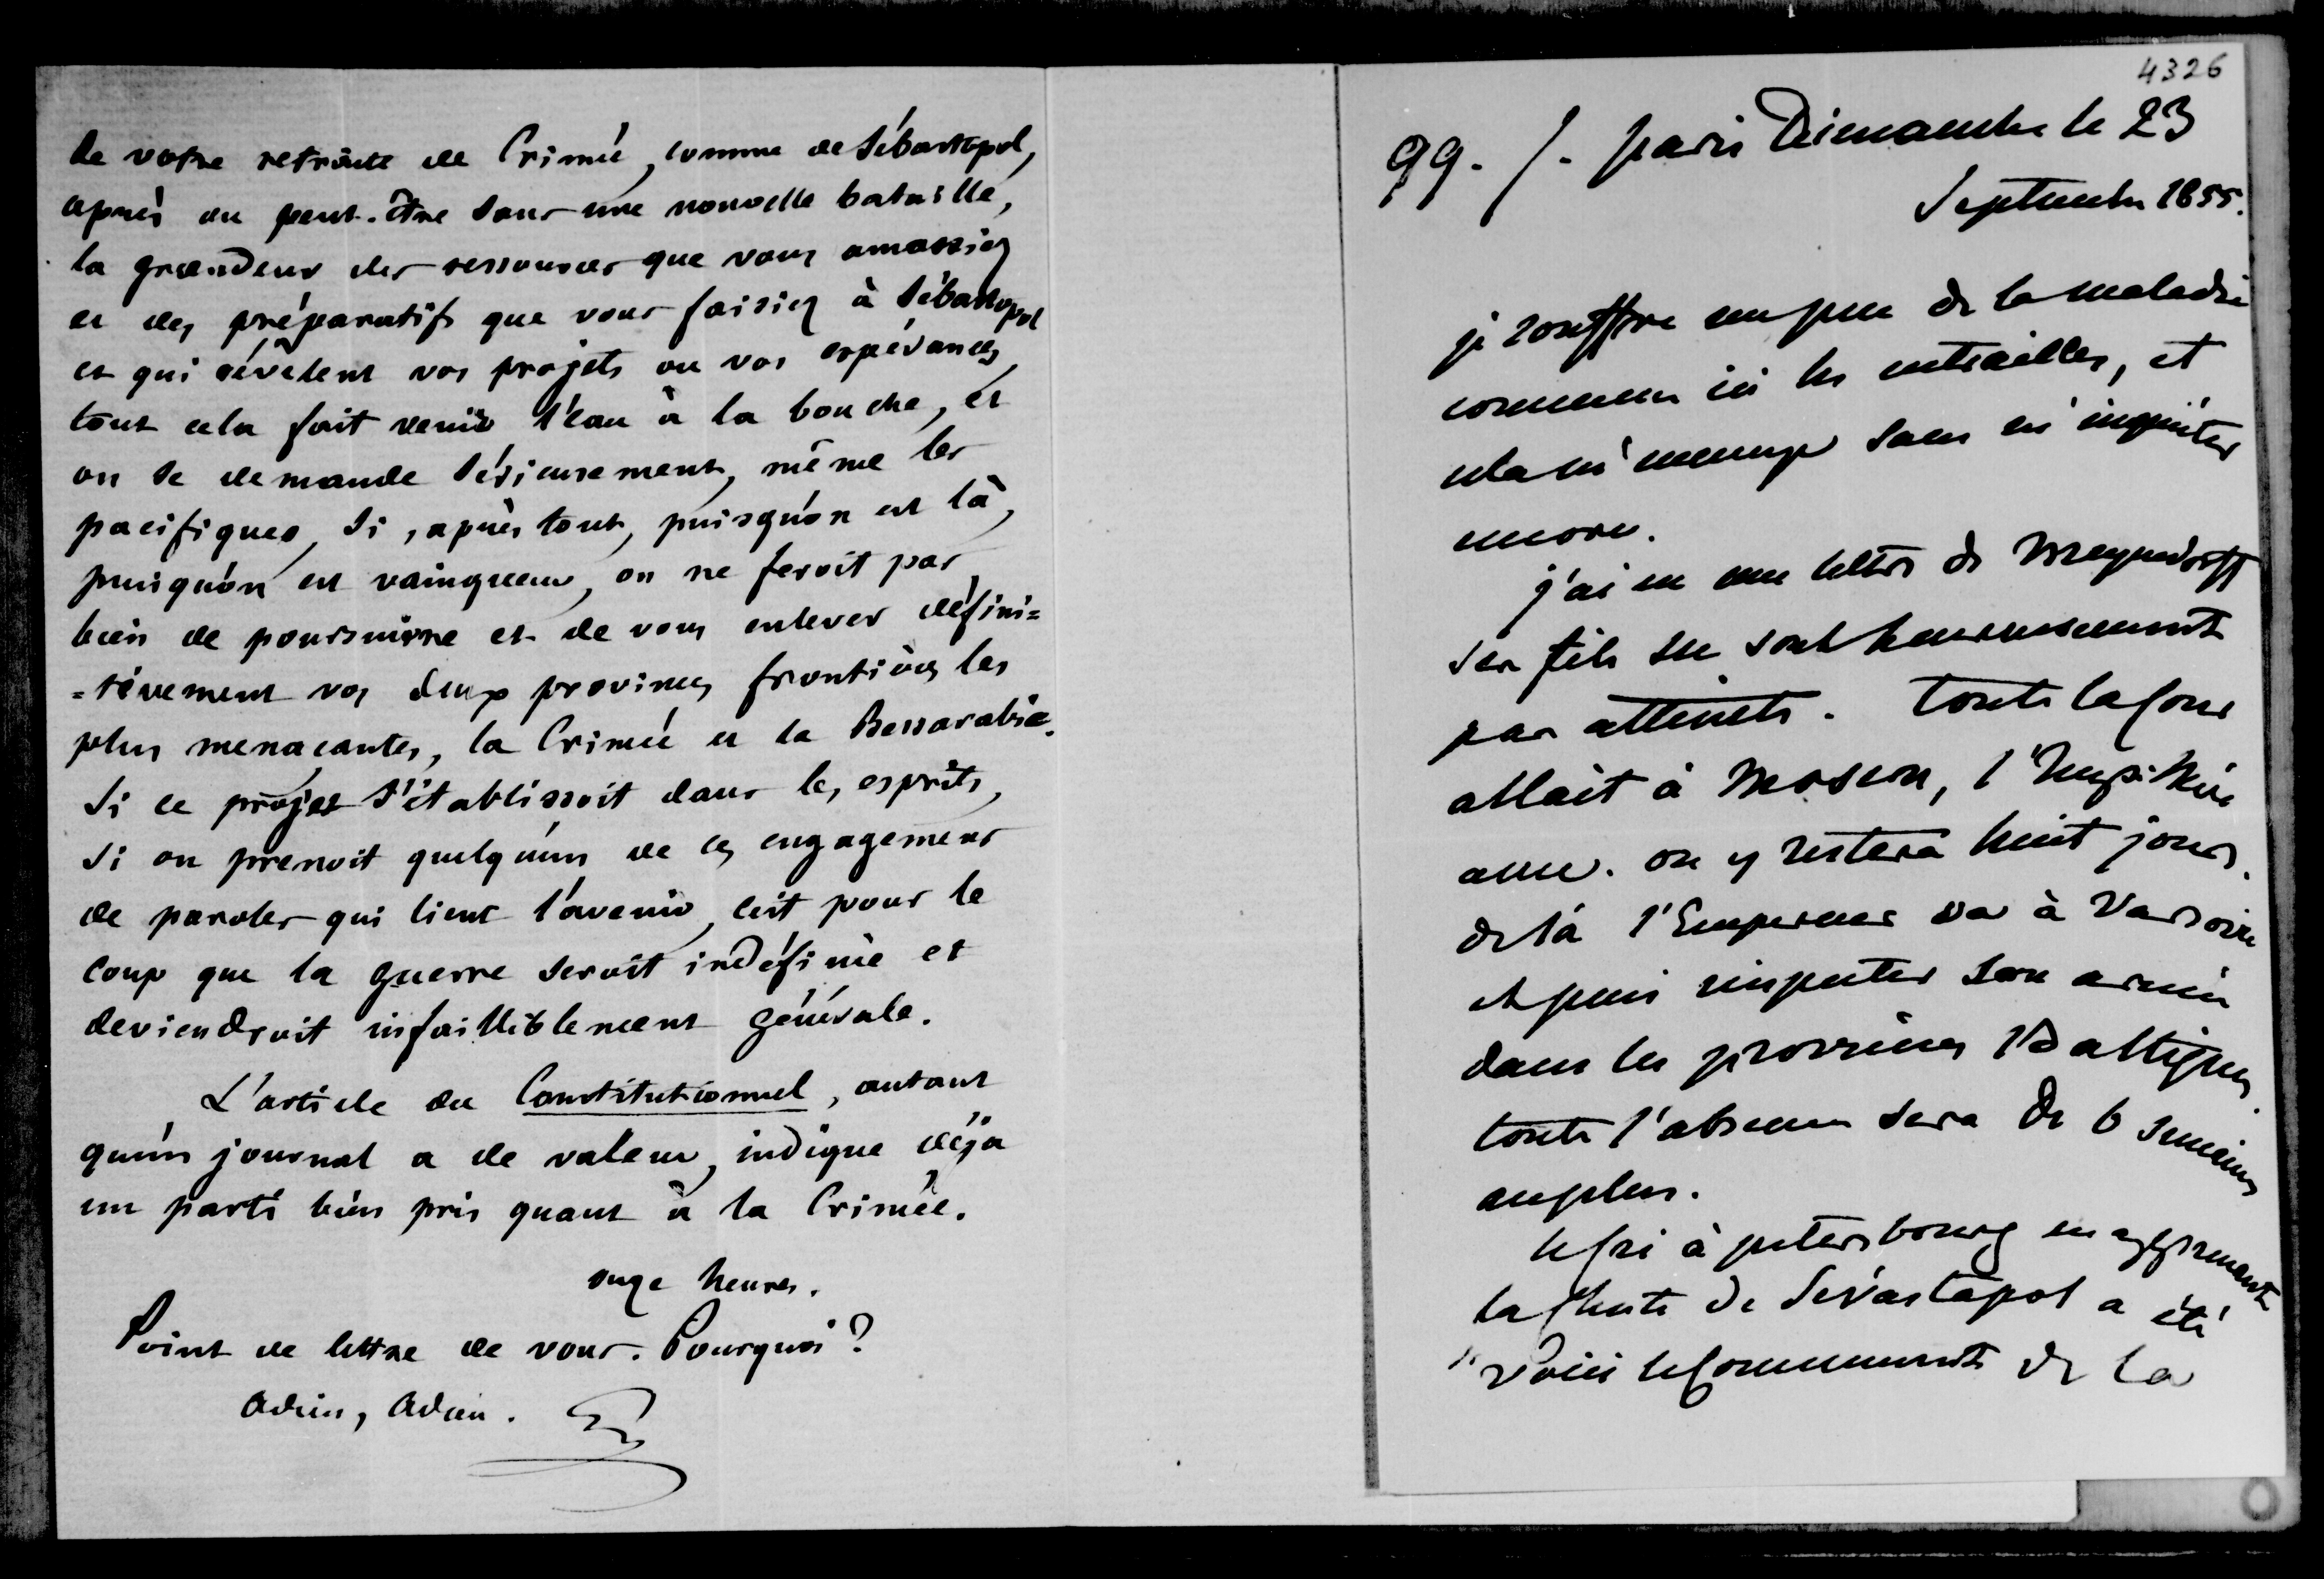 de votre retraite de Crimée, comme de Sébastopol,
après ou peut-être sans une nouvelle bataille,
la grandeur des ressources que vous amassiez
et des préparatifs que vous faisiez à Sébastopol
et qui révèlent vos projets ou vos espérances,
tout cela fait venir l'eau à la bouche, et
on se demande sérieusement, même les
pacifiques, si, après tout, puisqu'on est là,
puisqu'on est vainqueur, on ne feroit pas
bien de poursuivre et de vous enlever défini=
=tivement vos deux provinces frontières les
plus menaçantes, la Crimée et la Bessarabie.
Si ce projet s'établissoit dans les esprits,
si on prenoit quelqu'un de ces engagemens
de paroles qui lient l'avenir, c'est pour le
coup que la guerre seroit indéfinie et
deviendroit infailliblement générale.
L'article du Constitutionnel, autant
qu'un journal a de valeur, indique déja
un parti bien pris quant à la Crimée.
onze heures.
Point de lettre de vous. Pourquoi?
Adieu, Adieu.
4326
99. /. paris Dimanche le 23
Septembre 1855.
je souffre un peu de la maladie
commune ici les entrailles, et
cela m'ennuye sans m'inquiéter
encore.
j'ai eu une lettre de Meyendorff
ses fils ne sont heureusement
pas atteints. toute la Cour
allait à Moscou, l'Imp: Mère
aussi. on y restera huit jours.
de là l'Empereur va à Varsovie
et puis inspecter son armée
dans les provinces Baltiques.
toute l'absence sera de 6 semaines
au plus.
le Cri à petersbourg en apprenant
la chute de Sévastopol a été
"Voici le Commencement de la